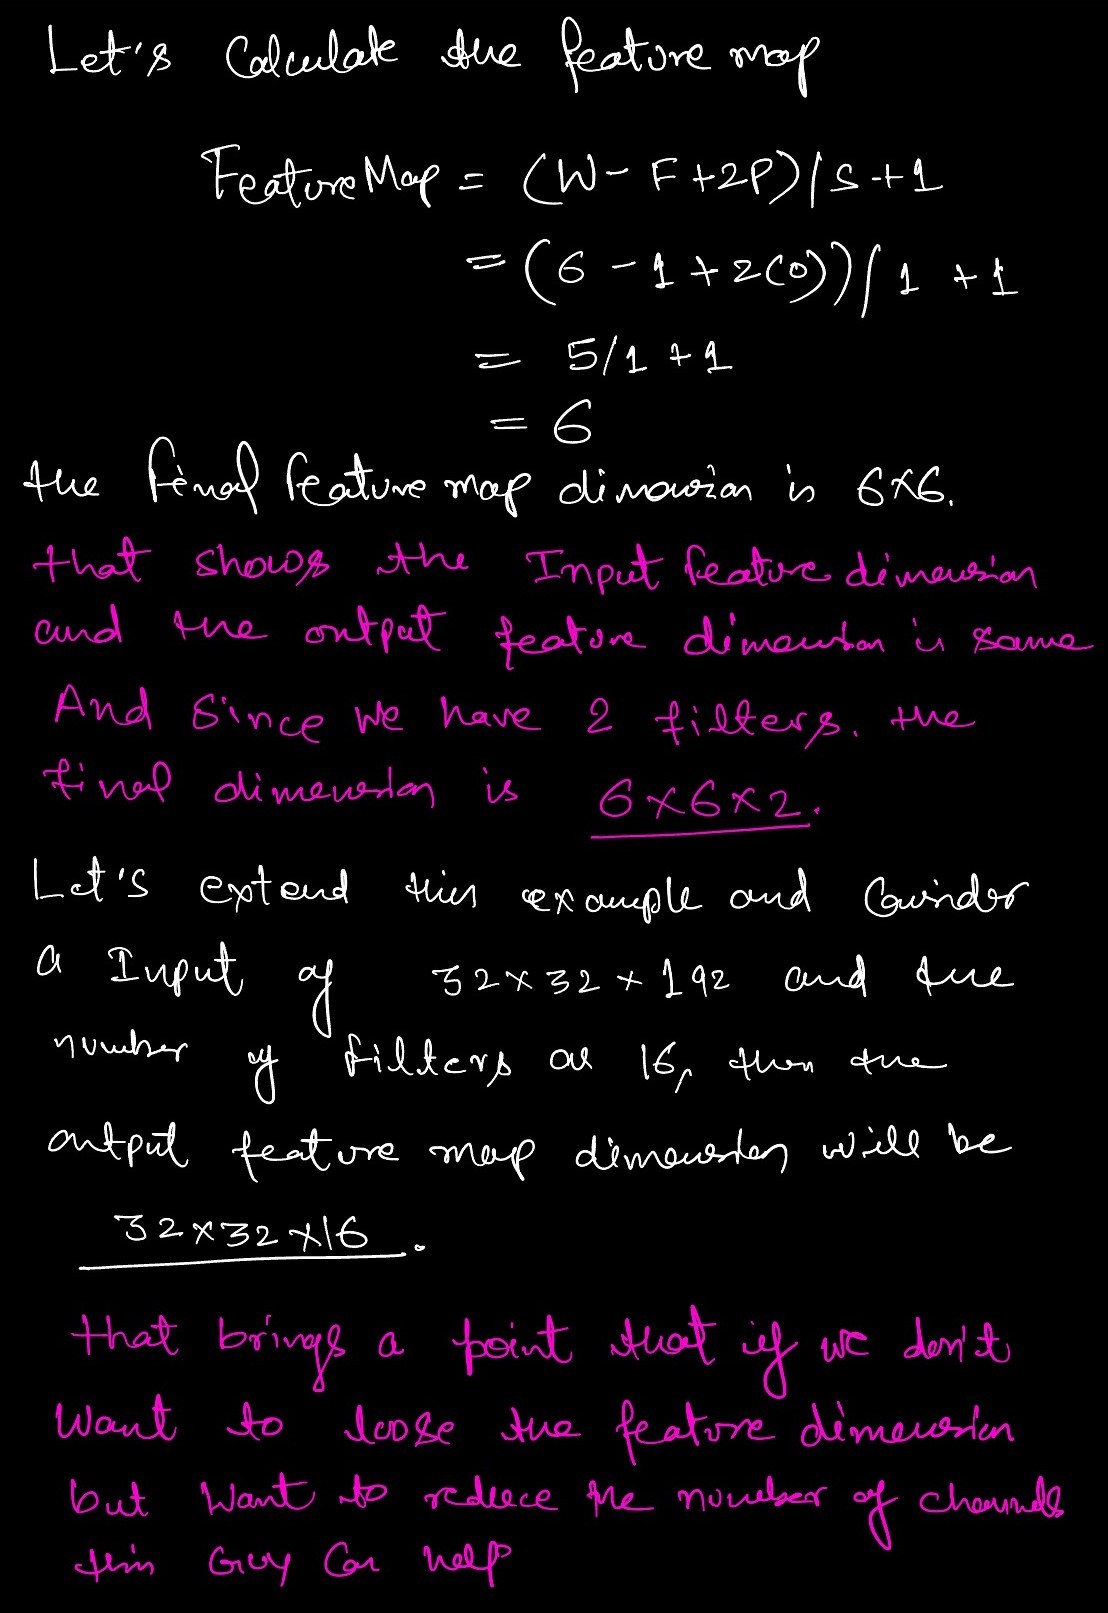 Let's Calculate the feature map
Feature Map = (W - F + 2P) / S + 1
= (6 - 1 + 2(0)) / 1 + 1
= 5/1 + 1
= 6
the final feature map dimension is 6x6.
that shows the Input feature dimension
and the output feature dimension is same
And Since We have 2 filters. the
final dimension is 6x6x2.
Let's extend this example and Consider
a Input of 32x32x192 and the
number of filters as 16, then the
output feature map dimension will be
32x32x16.
that brings a point that if we don't
Want to loose the feature dimension
but Want to reduce the number of channels
this Guy Can help